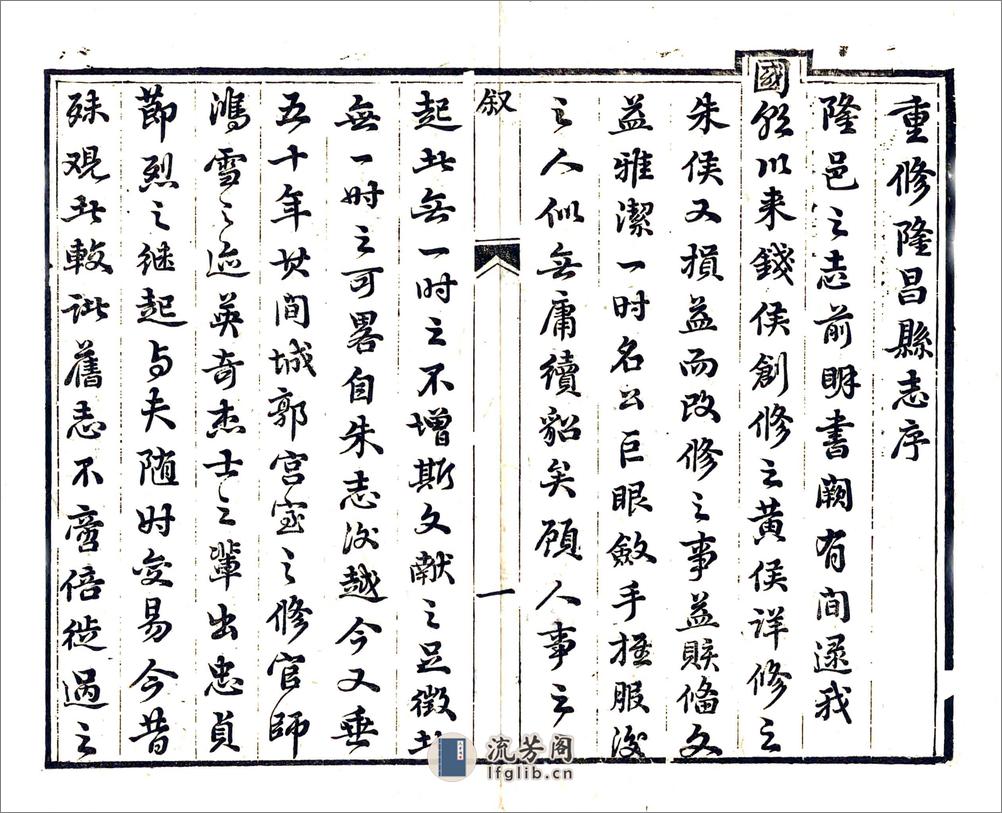 重修隆昌縣志序
隆邑之志前明書闕有間逮我
國朝以来錢侯創修之黄侯詳修之
朱侯又損益而改修之事益賅俻文
益雅潔一时名公巨眼斂手推服後
之人似無庸續貂矣顧人事之
叙
一
起此無一时之不增斯文獻之足徵此
無一时之可畧自朱志後越今又垂
五十年其间城郭宫室之修官師
鴻雪之迹英奇杰士之輩出忠貞
節烈之继起与夫随时变易今昔
殊观此較诸舊志不啻倍徙過之
流芳阁
lfglib.cn